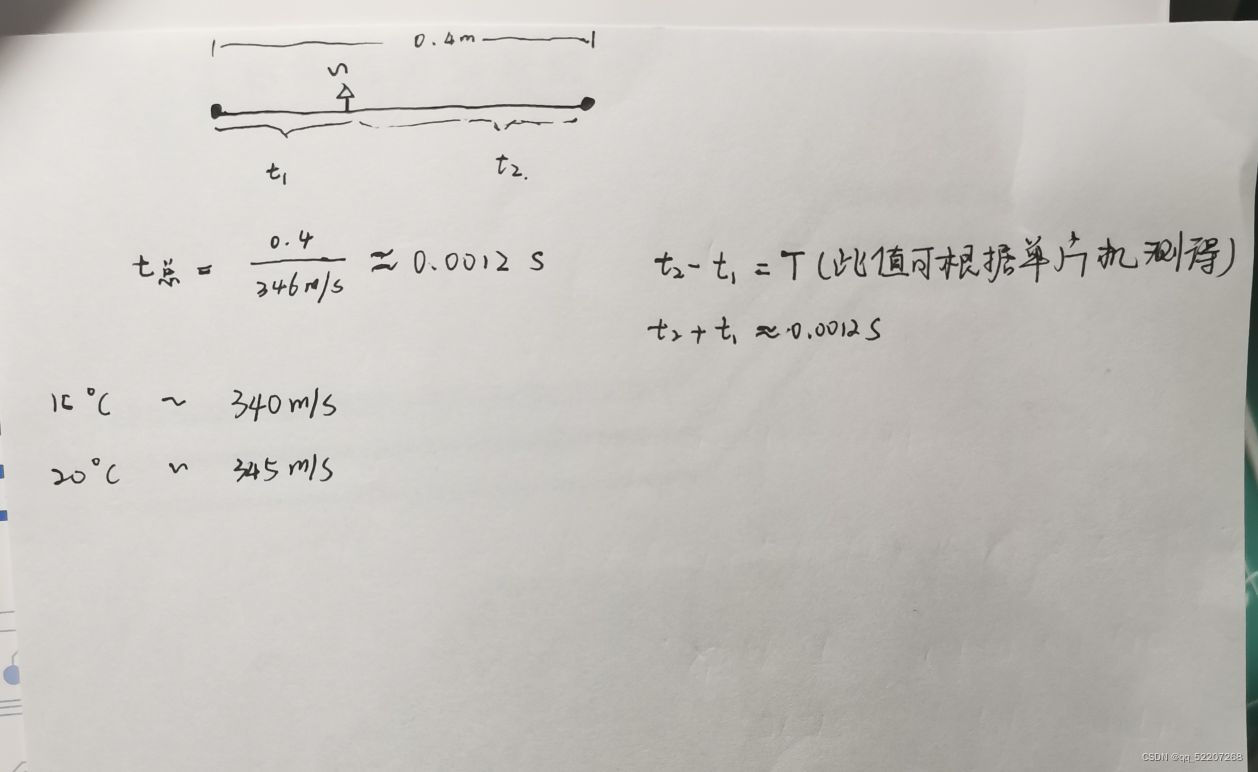 0.4m
S
t₁
t₂.
t总 = 0.4 / 346m/s ≈ 0.0012 S
t₂ - t₁ = T (此值可根据单片机测得)
t₂ + t₁ ≈ 0.0012S
15°C ~ 340m/s
20°C ~ 345m/s
CSDN @qq_52207268